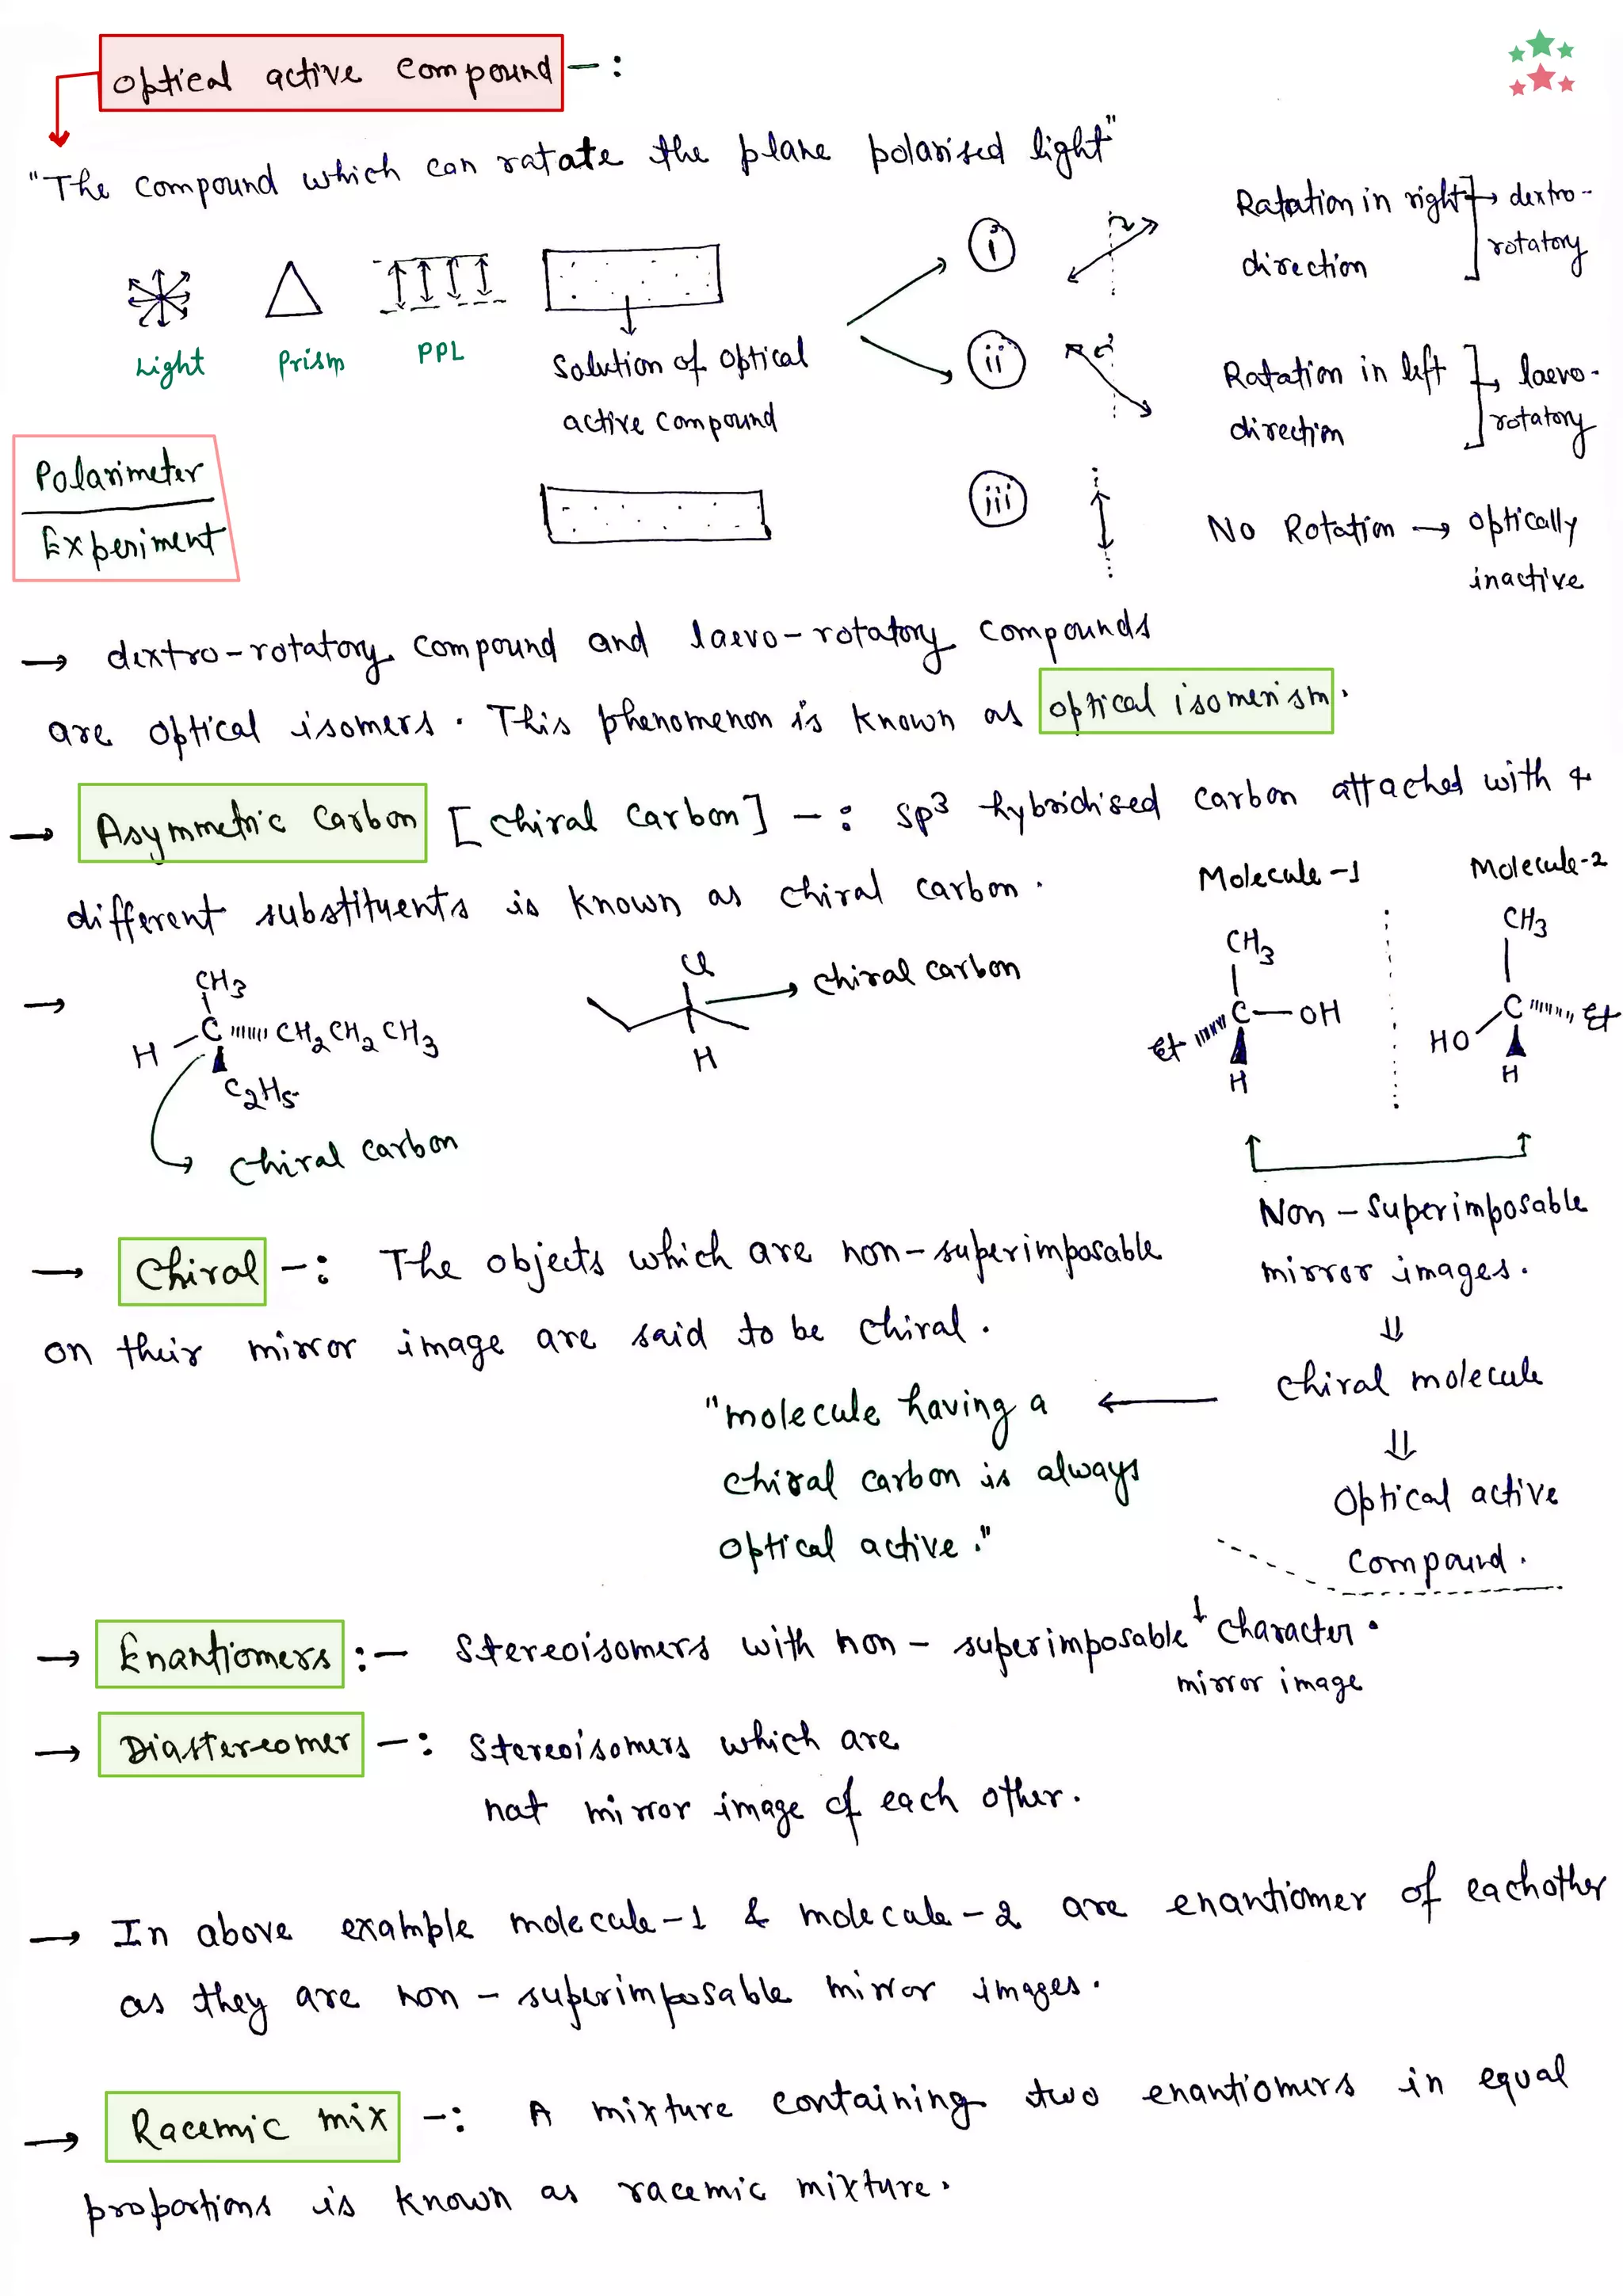 Optical active compound -:
"The compound which can ratate the plane polarised light"
Light
Prism
PPL
Solution of optical
active compound
i
Ratation in right
direction
dextro-
rotatory
ii
Ratation in left
direction
laevo-
rotatory
Polarimeter
Experiment
iii
No Rotation → optically
inactive
→ dextro-rotatory compound and laevo-rotatory compounds
are optical isomers. This phenomenon is known as optical isomerism.
→ Asymmetric Carbon [chiral carbon] -: sp3 hybridised carbon attached with 4
different substituents is known as chiral carbon.
Molecule-1
Molecule-2
→ CH3
H - C CH2 CH2 CH3
C2H5
chiral carbon
Cl
chiral carbon
H
CH3
Et C - OH
H
CH3
HO C Et
H
Non-superimposable
mirror images.
⇓
chiral molecule
⇓
Optical active
compound.
→ Chiral -: The objects which are non-superimposable
on their mirror image are said to be chiral.
"molecule having a ←
chiral carbon is always
optical active."
→ Enantiomers :- Stereoisomers with non-superimposable ↓ character.
mirror image
→ Diastereomer -: Stereoisomers which are
nat mirror image of each other.
→ In above example molecule-1 & molecule-2 are enantiomer of eachother
as they are non-superimposable mirror images.
→ Racemic mix -: A mixture containing two enantiomers in equal
proportions is known as racemic mixture.